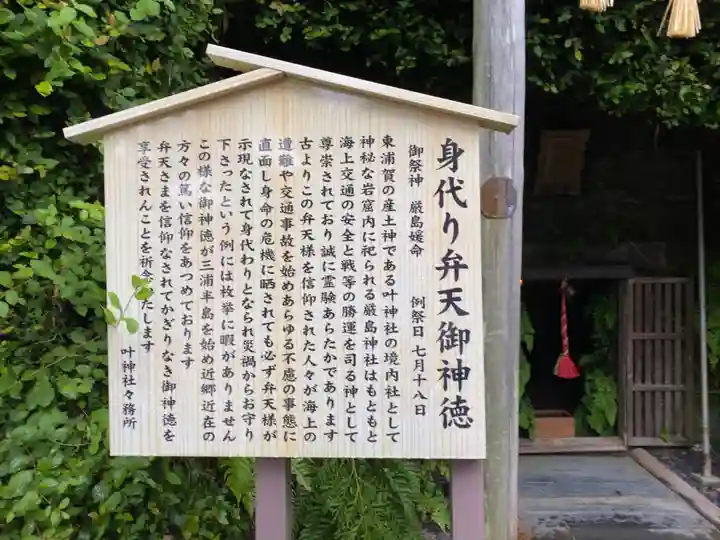 身代り弁天御神徳
御祭神　厳島媛命　　例祭日　七月十八日
東浦賀の産土神である叶神社の境内社として
神秘な岩窟内に祀られる厳島神社はもともと
海上交通の安全と戦等の勝運を司る神として
尊崇されており誠に霊験あらたかであります
古よりこの弁天様を信仰された人々が海上の
遭難や交通事故を始めあらゆる不慮の事態に
直面し身命の危機に晒されても必ず弁天様が
示現なされて身代わりとなられ災禍からお守り
下さったという例には枚挙に暇がありません
この様な御神徳が三浦半島を始め近郷近在の
方々の篤い信仰をあつめております
弁天さまを信仰なされてかぎりなき御神徳を
享受されんことを祈念いたします
叶神社々務所